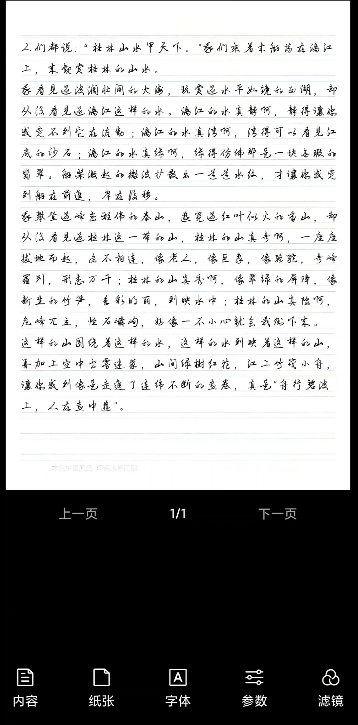 人们都说：“桂林山水甲天下。”我们乘着木船荡在漓江
上，来观赏桂林的山水。
我看见过波澜壮阔的大海，玩赏过水平如镜的西湖，却
从没看见过漓江这样的水。漓江的水真静啊，静得让你
感觉不到它在流动；漓江的水真清啊，清得可以看见江
底的沙石；漓江的水真绿啊，绿得仿佛那是一块无瑕的
翡翠。船桨激起的微波扩散出一道道水纹，才让你感觉
到船在前进，岸在后移。
我攀登过峰峦雄伟的泰山，游览过红叶似火的香山，却
从没看见过桂林这一带的山，桂林的山真奇啊，一座座
拔地而起，各不相连，像老人，像巨象，像骆驼，奇峰
罗列，形态万千；桂林的山真秀啊，像翠绿的屏障，像
新生的竹笋，色彩明丽，倒映水中；桂林的山真险啊，
危峰兀立，怪石嶙峋，好像一不小心就会栽倒下来。
这样的山围绕着这样的水，这样的水倒映着这样的山，
再加上空中云雾迷蒙，山间绿树红花，江上竹筏小舟，
让你感到像是走进了连绵不断的画卷，真是“舟行碧波
上，人在画中游”。
上一页 1/1 下一页
内容 纸张 字体 参数 滤镜